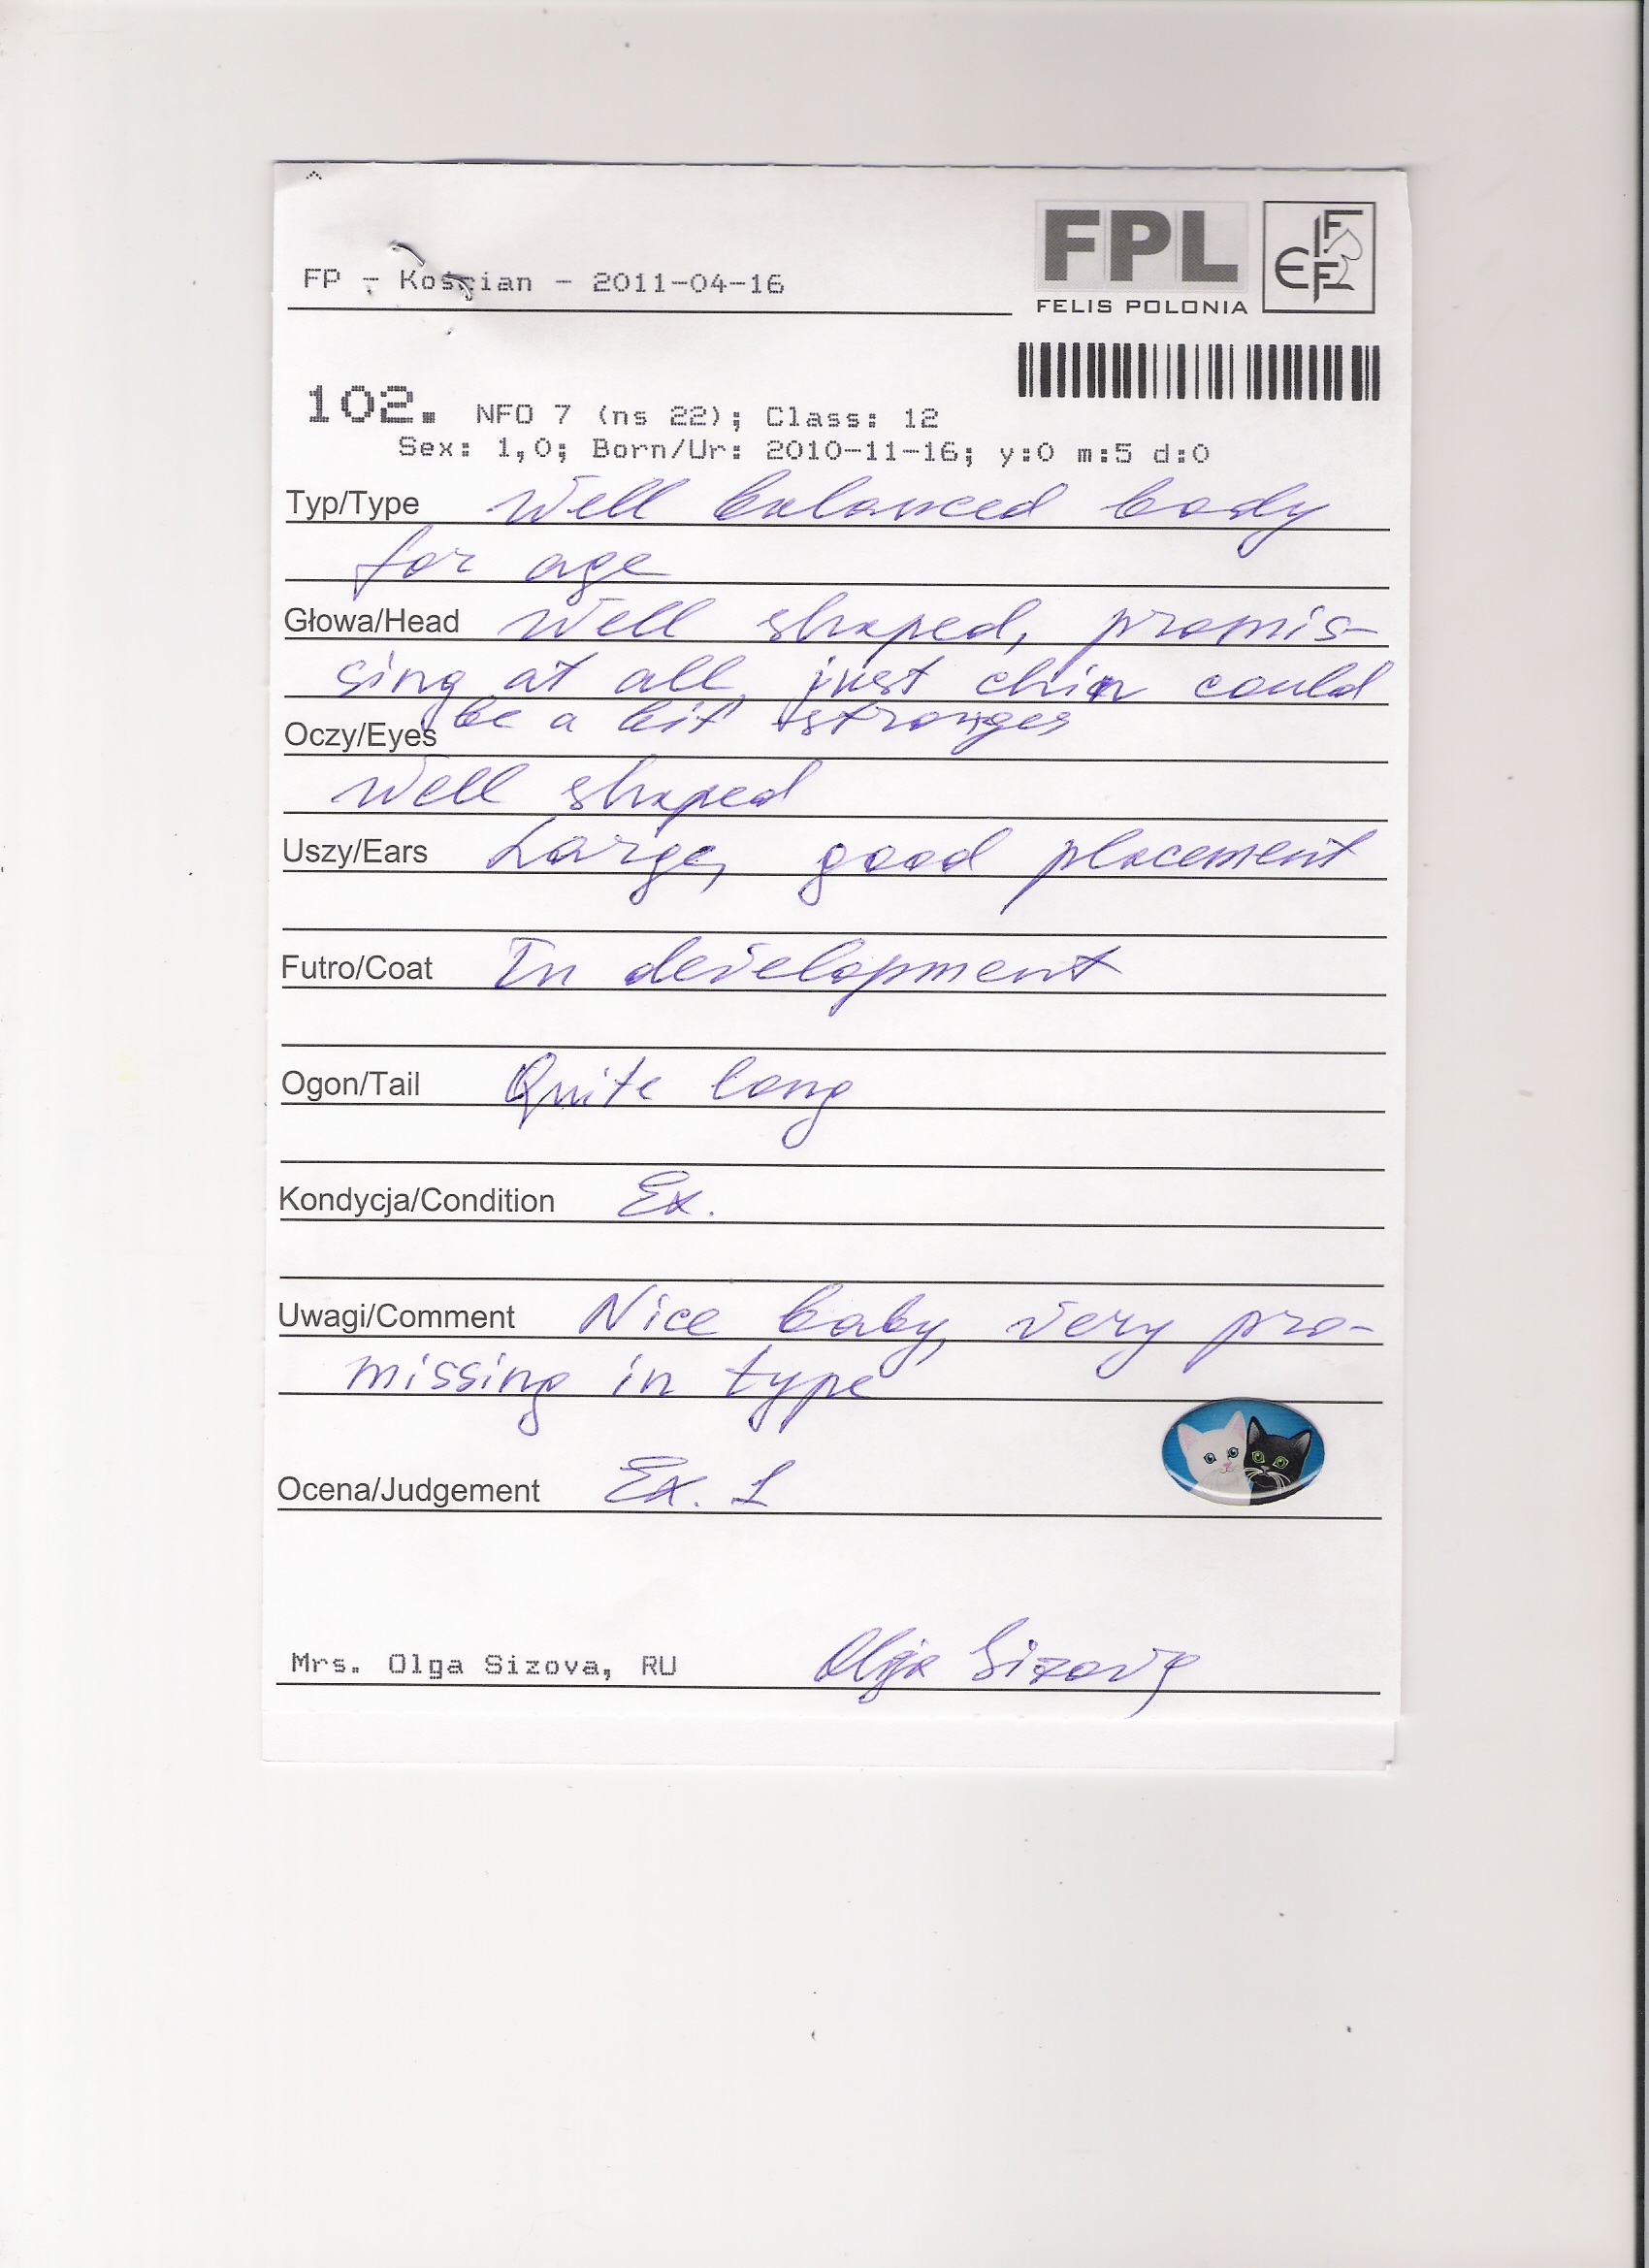 ^
FPL
FIFE
FELIS POLONIA
FP - Kościan - 2011-04-16
102. NFO 7 (ns 22); Class: 12
Sex: 1,0; Born/Ur: 2010-11-16; y:0 m:5 d:0
Typ/Type Well balanced body
for age
Głowa/Head Well shaped, promis-
sing at all, just chin could
be a bit stronger
Oczy/Eyes
Well shaped
Uszy/Ears Large, good placement
Futro/Coat In development
Ogon/Tail Quite long
Kondycja/Condition Ex.
Uwagi/Comment Nice baby, very pro-
missing in type
Ocena/Judgement Ex. 1
Mrs. Olga Sizova, RU Olga Sizova